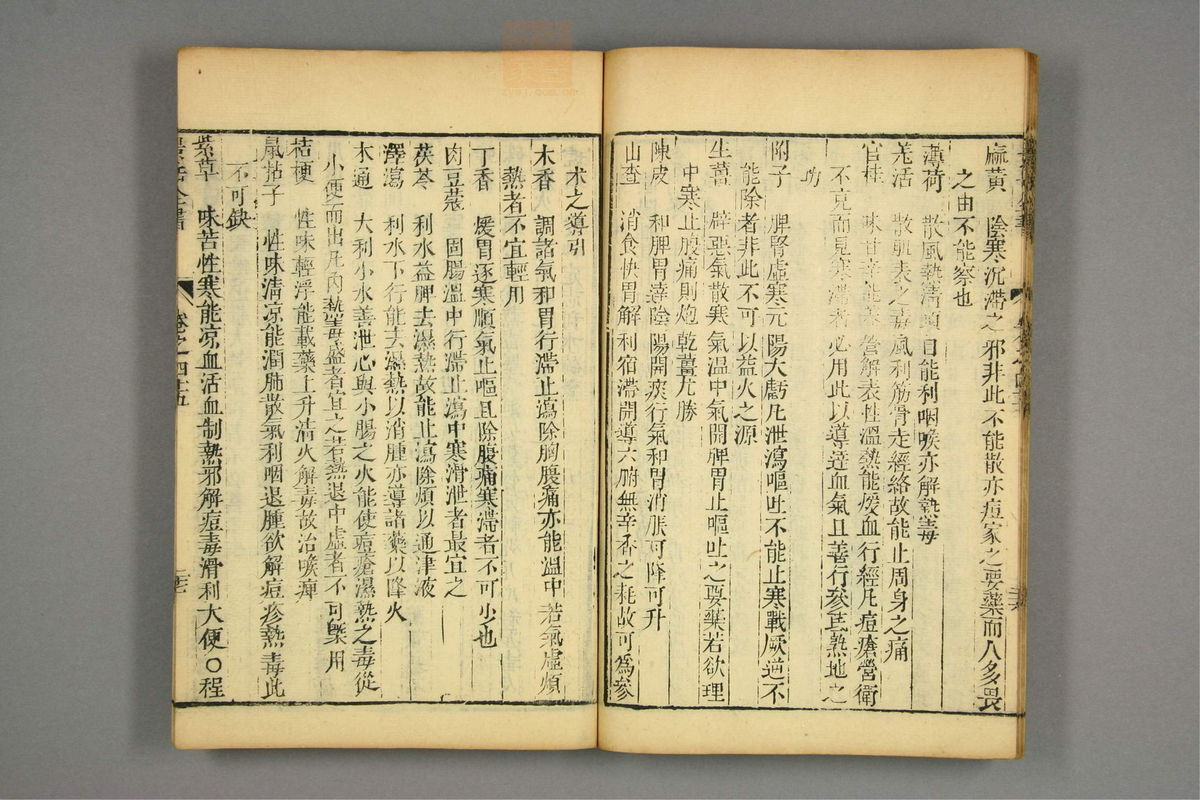 麻黃　陰寒沉滯之邪非此不能散亦痘家之要藥而人多畏
之由不能察也
薄荷　散風熱清頭目能利咽喉亦解熱毒
羌活　散肌表之毒風利筋骨走經絡故能止周身之痛
官桂　味甘辛能養營解表性溫熱能煖血行經凡痘瘡營衛
不充而見寒滯者必用此以導達血氣且善行參芪熟地之
功
附子　脾腎虛寒元陽大虧凡泄瀉嘔吐不能止寒戰厥逆不
能除者非此不可以益火之源
生薑　辟惡氣散寒氣溫中氣開脾胃止嘔吐之要藥若欲理
中寒止腹痛則炮乾薑尤勝
陳皮　和脾胃達陰陽開痰行氣和胃消脹可降可升
山查　消食快胃解利宿滯開導六腑無辛香之耗故可為參
朮之導引
木香　調諸氣和胃行滯止瀉除胸腹痛亦能溫中若氣虛煩
熱者不宜輕用
丁香　煖胃逐寒順氣止嘔且除腹痛寒滯者不可少也
肉豆蔻　固腸溫中行滯止瀉中寒滑泄者最宜之
茯苓　利水益脾去濕熱故能止瀉除煩以通津液
澤瀉　利水下行能去濕熱以消腫亦導諸藥以降火
木通　大利小水善泄心與小腸之火能使痘瘡濕熱之毒從
小便而出凡內熱毒盛者宜之若熱退中虛者不可槩用
桔梗　性味輕浮能載藥上升清火解毒故治喉痺
鼠粘子　性味清凉能潤肺散氣利咽退腫欲解痘疹熱毒此
不可缺
紫草　味苦性寒能凉血活血制熱邪解痘毒滑利大便○程
卷之四十五